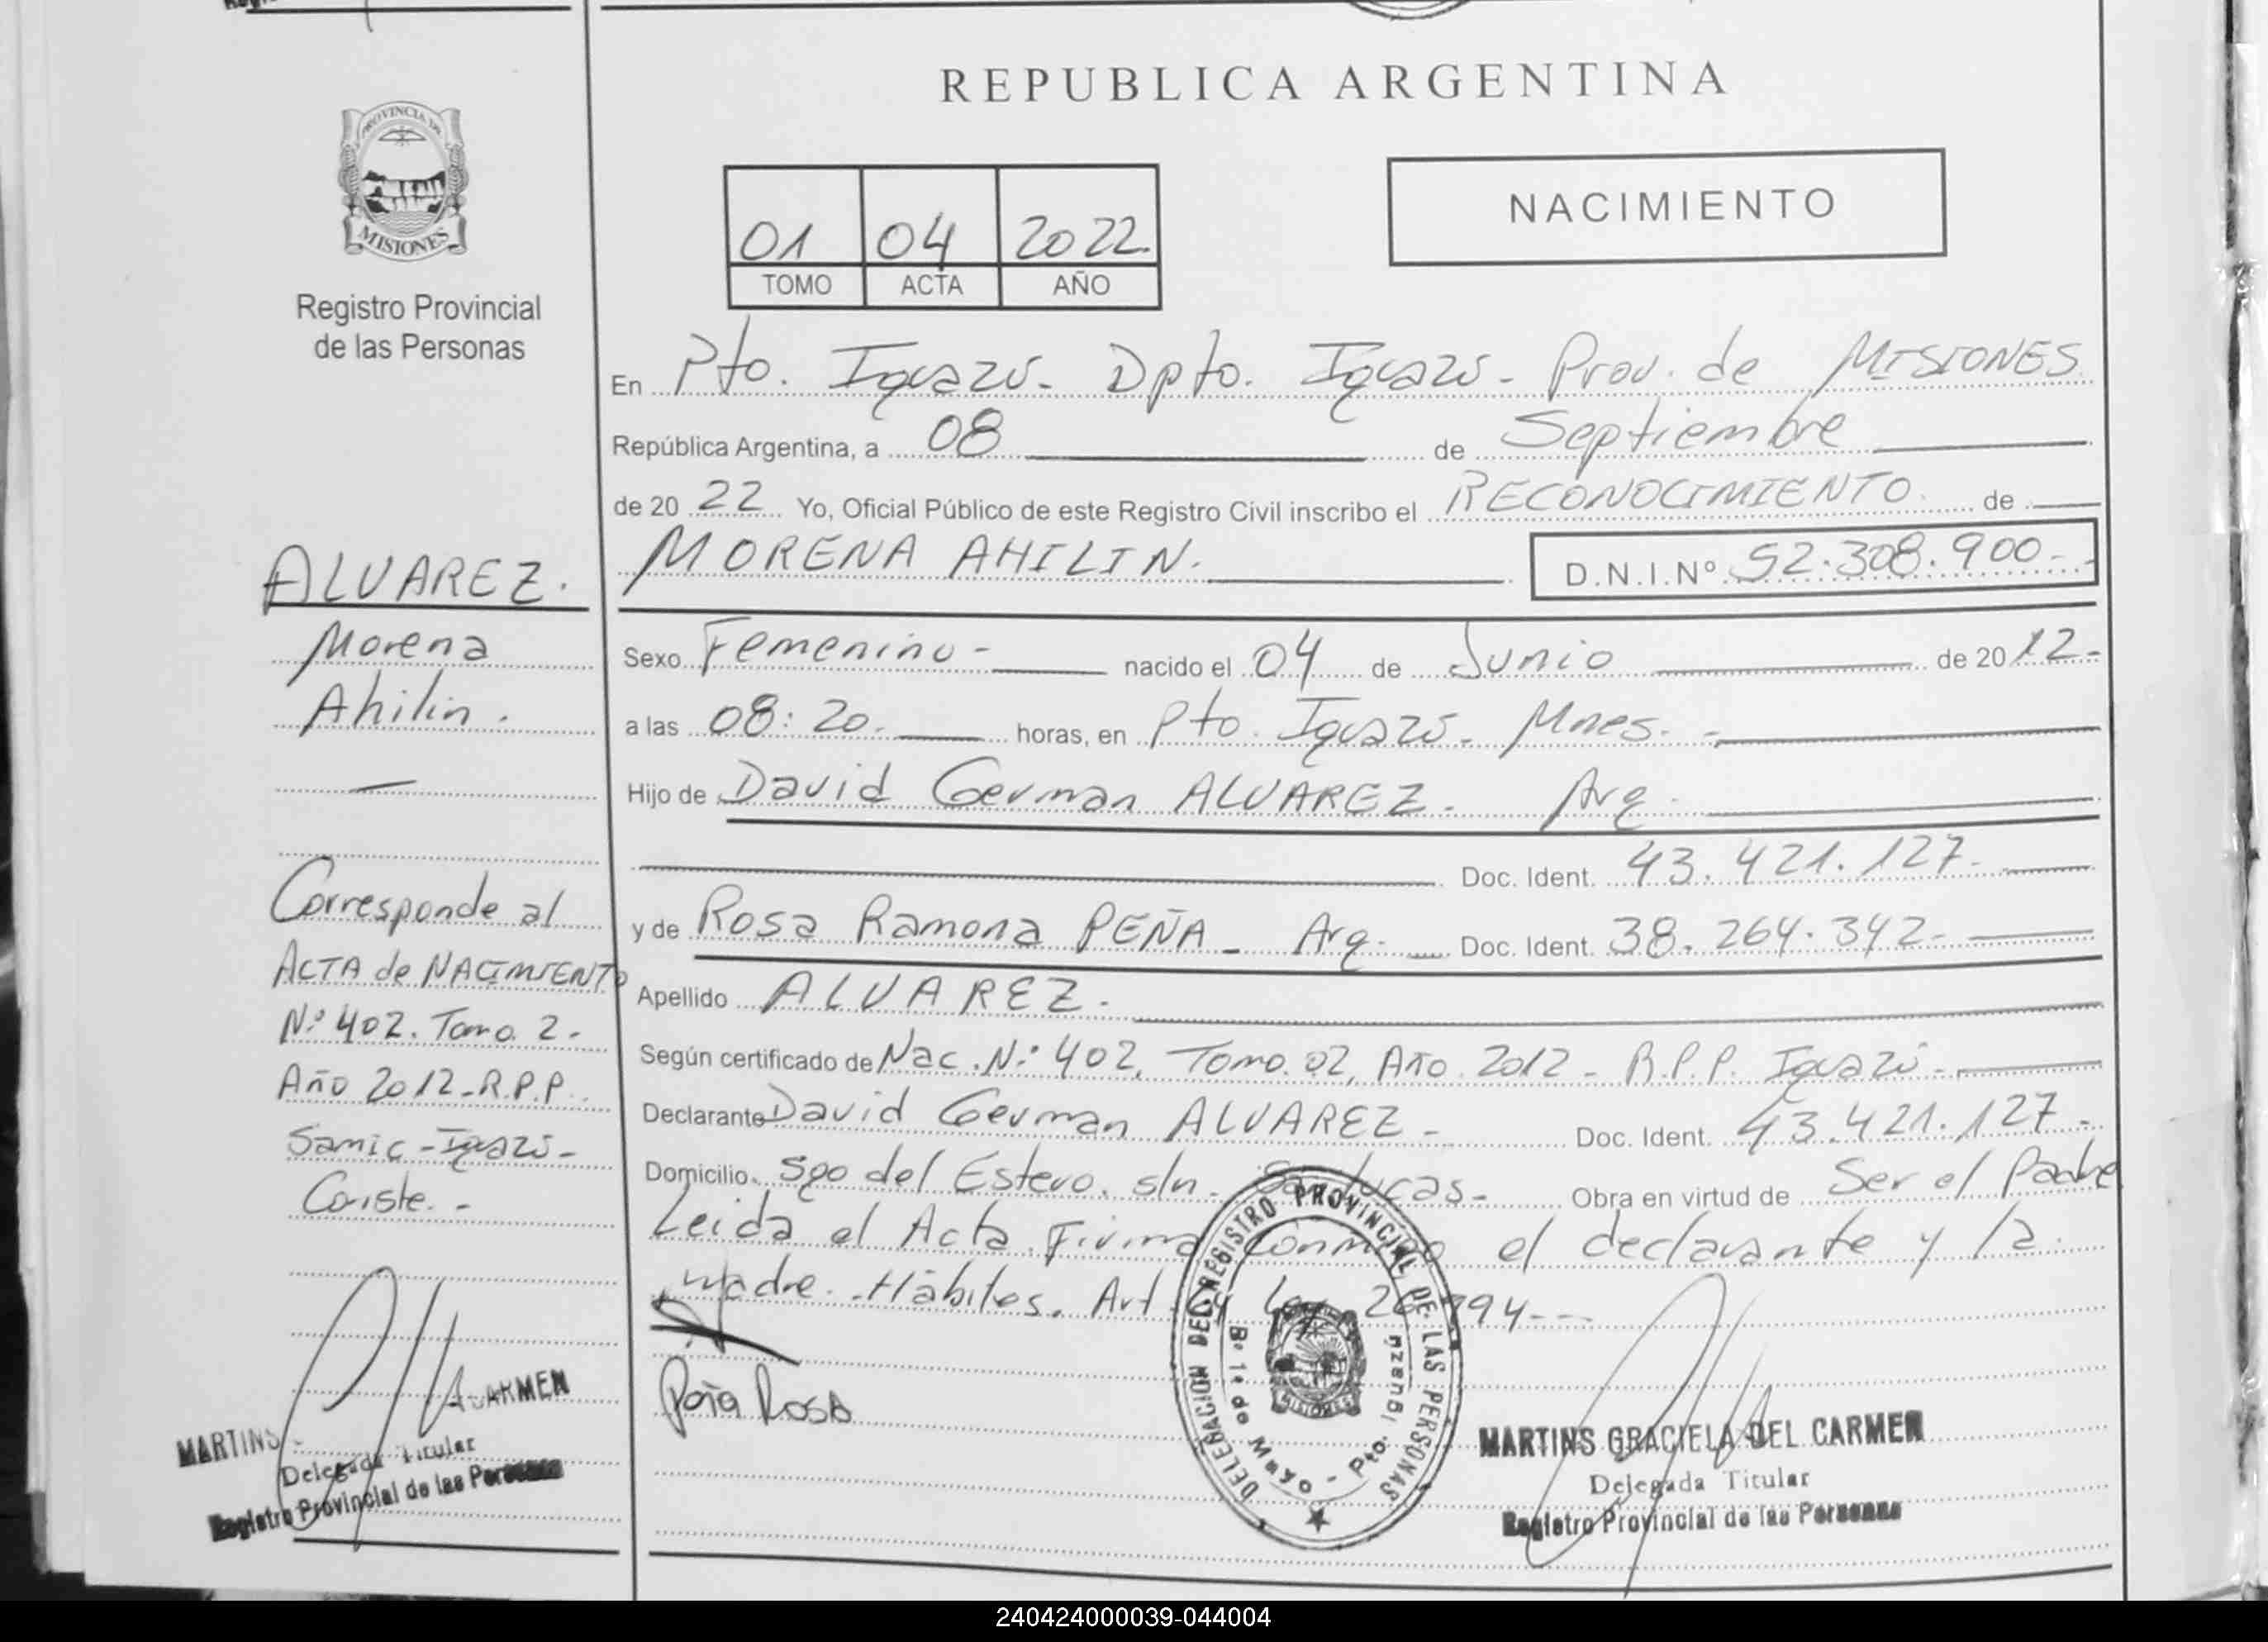 REPUBLICA ARGENTINA
PROVINCIA DE
MISIONES
Registro Provincial
de las Personas
NACIMIENTO
01 04 2022.
TOMO ACTA AÑO
En Pto. Iguazú - Dpto. Iguazú - Prov. de MISIONES
República Argentina, a 08 de Septiembre
de 20 22 Yo, Oficial Público de este Registro Civil inscribo el RECONOCIMIENTO de
MORENA AHILIN. D.N.I.Nº 52.308.900.-
Sexo Femenino - nacido el 04 de Junio de 20 12.-
a las 08:20. horas, en Pto. Iguazú - Mnes. -
Hijo de David German ALVAREZ - Arg.
Doc. Ident. 43.421.127.-
y de Rosa Ramona PEÑA - Arg. Doc. Ident. 38.264.342-
Apellido ALVAREZ.
Según certificado de Nac. Nº 402, Tomo. 02, Año 2012 - R.P.P. Iguazú -
Declarante David German ALVAREZ - Doc. Ident. 43.421.127.-
Domicilio Sgo del Estero. s/n. San Lucas - Obra en virtud de Ser el Padre
Leida el Acta Firma conmigo el declarante y la
madre. Hábiles. Art. Ley 26994--
Peña Rosa
ALVAREZ.
Morena
Ahilin.
Corresponde al
ACTA de NACIMIENTO
Nº 402. Tomo 2-
Año 2012-R.P.P.
Samic - Iguazú -
Conste. -
MARTINS CARMEN
Delegada Titular
Registro Provincial de las Personas
DELEGACION DEL REGISTRO PROVINCIAL DE LAS PERSONAS
Bº 1º de Mayo - Pto. Iguazú
MISIONES
MARTINS GRACIELA DEL CARMEN
Delegada Titular
Registro Provincial de las Personas
240424000039-044004